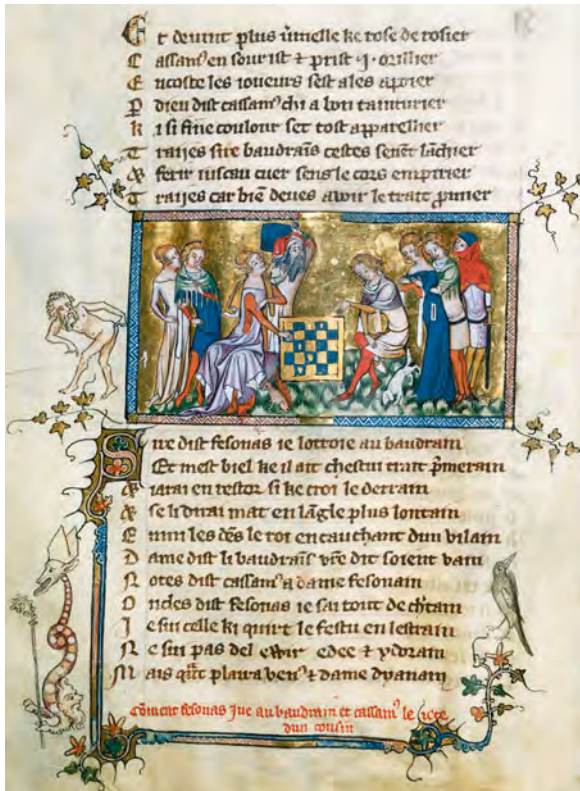 Et devint plus vmelle ke rose de rosier
Cassamꝰ en sourist ⁊ prist .j. orillier
Encoste les ioueurs sest ales apoier
Per dieu dist cassamꝰ chi a bon tainturier
ki si fine coulour set tost apparellier
Traijes sire baudraīs cestes sevent lachier
& ferir iuscau cuer sens le cors empirier
Traijes car biē deves avoir le trait pmier
Sire dist fesonas ie lottroie au baudrain
Et mest biel ke il ait chestui trait pmerain
& iarai en testor si ke croi le derrain
& se li dirai mat en lāgle plus lontain
Emmi les dēs le roi en cauchant dun vilain
Dame dist li baudraīs vre dit soient vain
Notes dist cassamꝰ a dame fesonain
Oncles dist fesonas ie sai tout de chtain
Je sui celle ki quirt le festu en lestrain
Ne sui pas del edee ⁊ ydorain
Mais qāt plaira venꝰ ⁊ dame dyanain
cōment fesonas jue au baudrain et cassamꝰ le
dun coussin